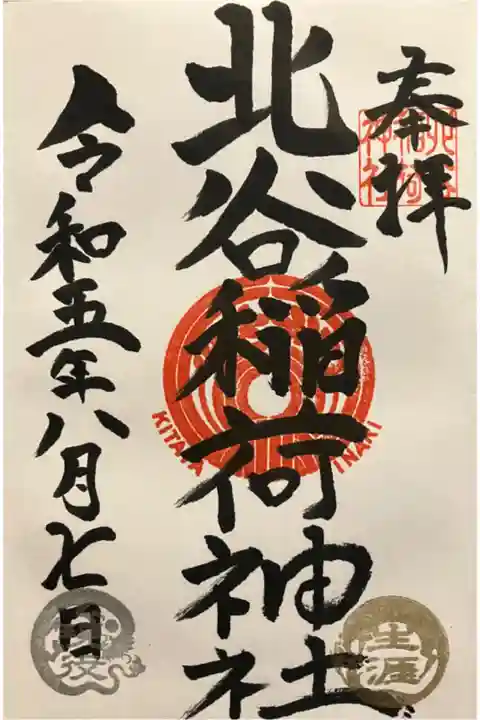 奉拝
北谷稲荷神社
令和五年八月七日
北谷稲荷神社
生涯